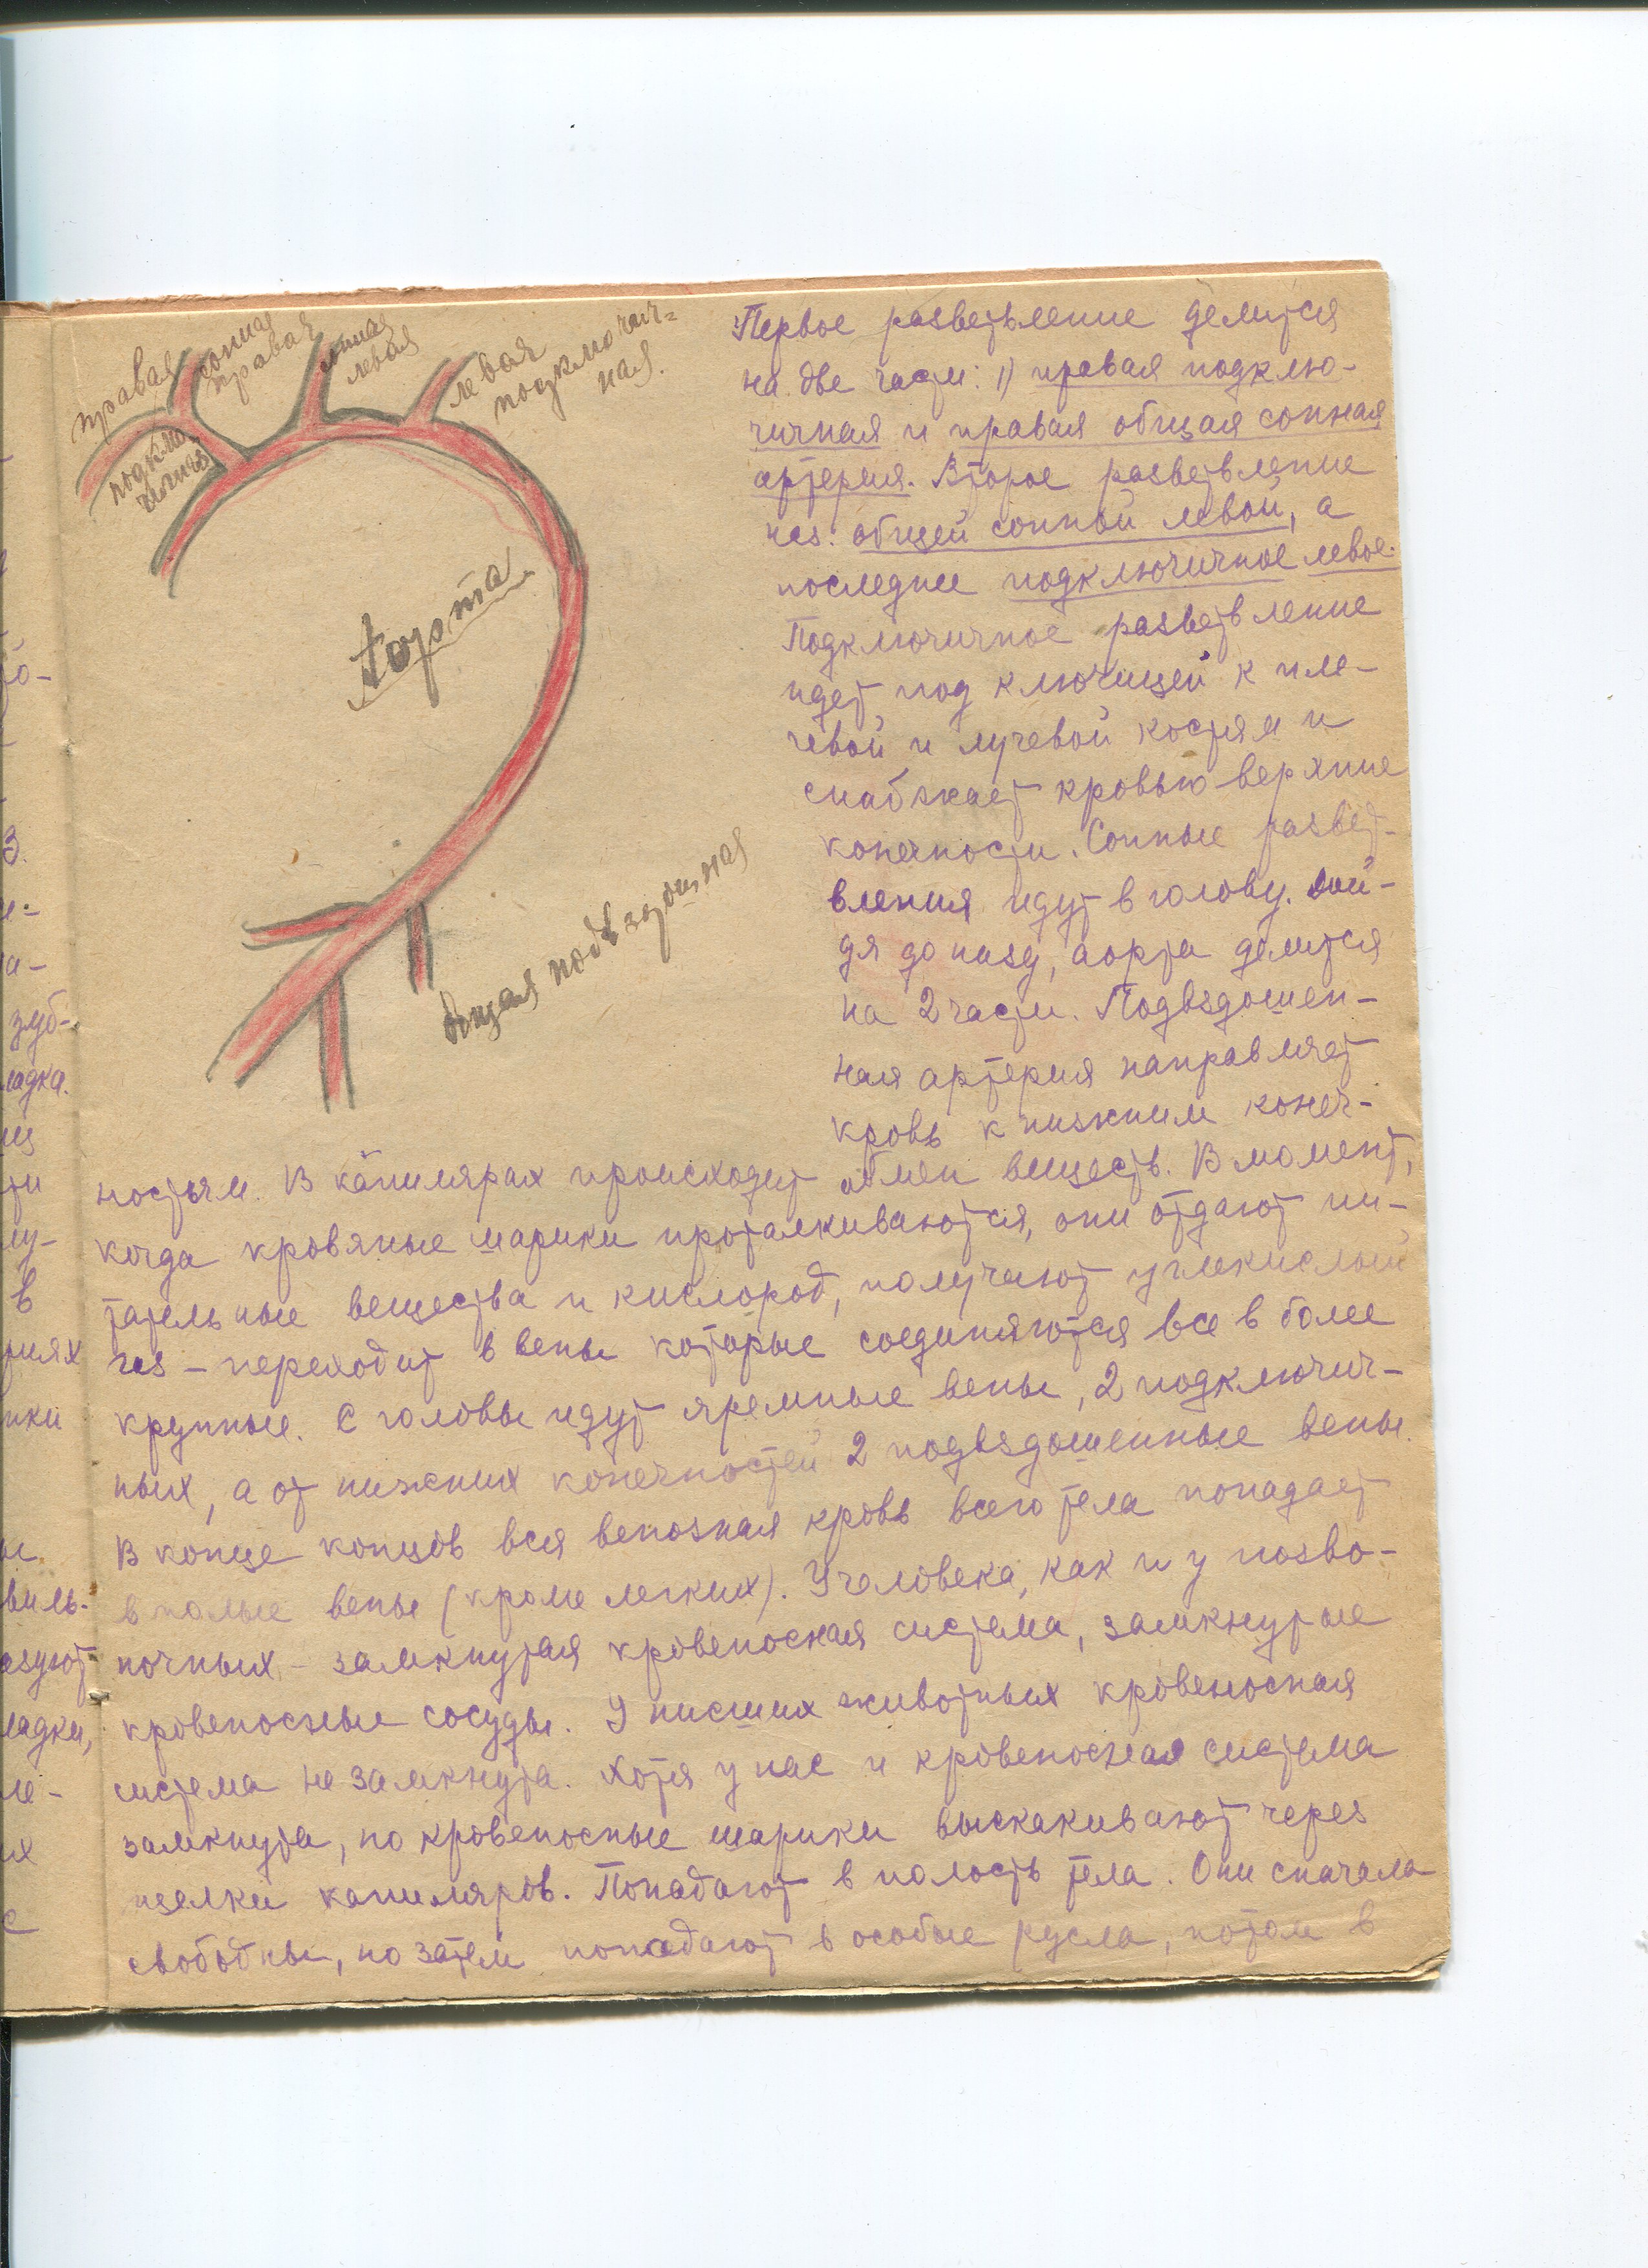 правая
подклю
чичная
сонная
правая
сонная
левая
левая
подключич=
ная.
Аорта
общая подвздошная
Первое разветвление делится
на две части: 1) правая подклю-
чичная и правая общая сонная
артерия. Второе разветвление
наз. общей сонной левой, а
последнее подключичное левое.
Подключичное разветвление
идет под ключицей к пле-
чевой и лучевой костям и
снабжает кровью верхние
конечности. Сонные развет-
вления идут в голову. Дой-
дя до низу, аорта делится
на 2 части. Подвздошен-
ная артерия направляет
кровь к нижним конеч-
ностям. В капилярах происходит обмен веществ. В момент,
когда кровяные шарики проталкиваются, они отдают пи-
тательные вещества и кислород, получают углекислый
газ – переходит в вены которые соединяются все в более
крупные. С головы идут яремные вены, 2 подключич-
ных, а от нижних конечностей 2 подвздошенные вены.
В конце концов вся венозная кровь всего тела попадает
в полые вены (кроме легких). У человека, как и у позво-
ночных – замкнутая кровеносная система, замкнутые
кровеносные сосуды. У нисших животных кровеносная
система не замкнута. Хотя у нас и кровеносная система
замкнута, но кровеносные шарики выскакивают через
щелки капиляров. Попадают в полость тела. Они сначала
свободны, но затем попадают в особые русла, потом в